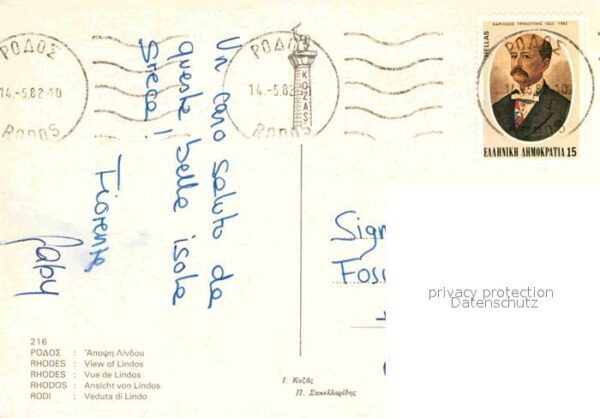 ΡΟΔΟΣ
14.-5.82-10
RODOS
ΡΟΔΟΣ
14.-5.82
RODOS
KOZAS
HELLAS
ΧΑΡΙΛΑΟΣ ΤΡΙΚΟΥΠΗΣ 1832-1982
ΡΟΔΟΣ
ΕΛΛΗΝΙΚΗ ΔΗΜΟΚΡΑΤΙΑ 15
Un caro saluto da
queste belle isole
Greca!
Fiorenza
Gaby
Sign
Fos
privacy protection
Datenschutz
216
ΡΟΔΟΣ : Ἄποψη Λίνδου
RHODES : View of Lindos
RHODES : Vue de Lindos
RHODOS : Ansicht von Lindos
RODI : Veduta di Lindo
Ι. Κοζᾶς
Π. Σακελλαρίδης